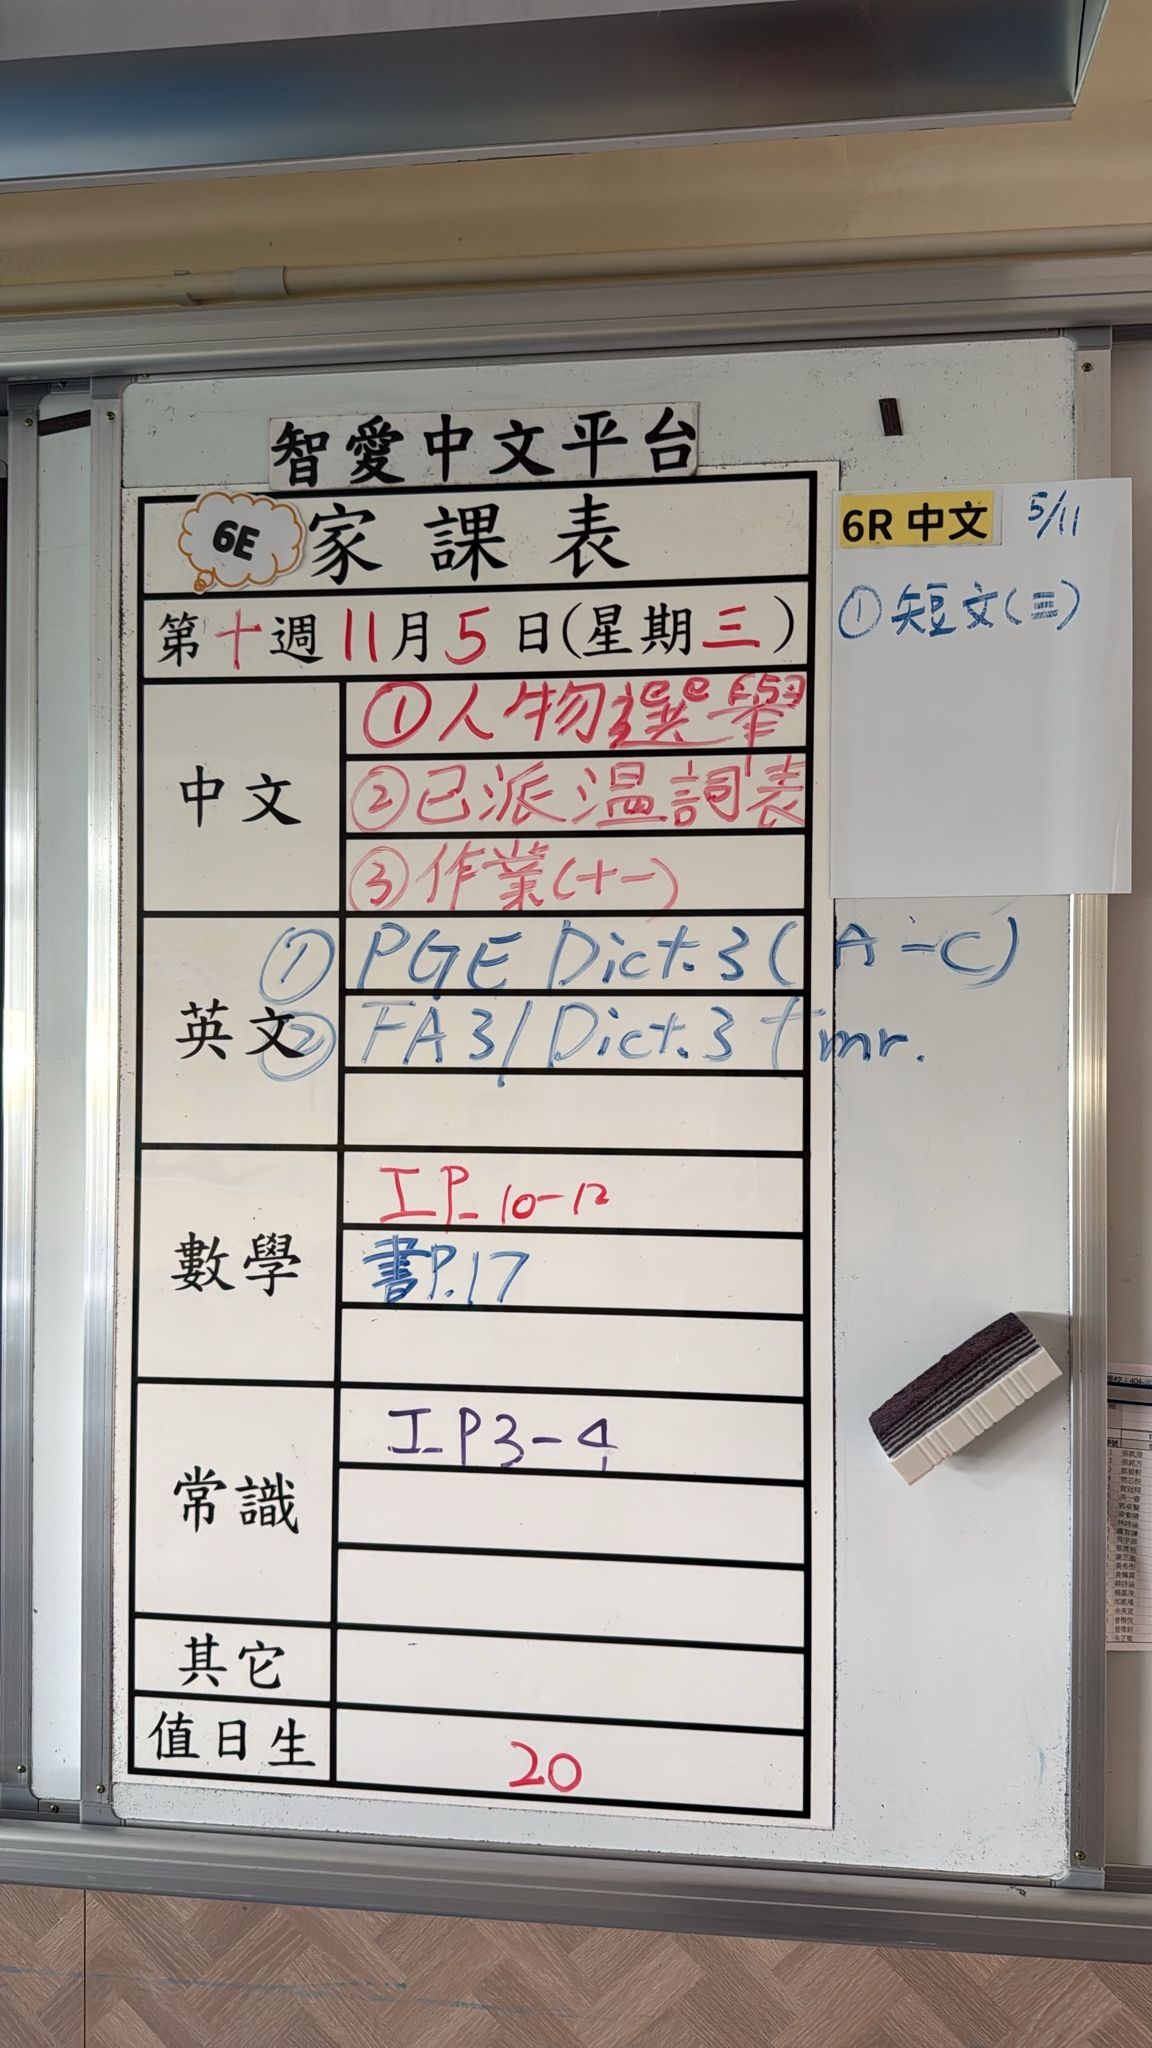 智愛中文平台
6E 家課表
第十週11月5日(星期三)
中文
①人物選舉
②已派溫詞表
③作業(十一)
英文
① PGE Dict.3 (A-C)
② FA3/Dict.3 tmr.
數學
工P.10-12
書P.17
常識
工P3-4
其它
值日生
20
6R 中文 5/11
①短文(三)